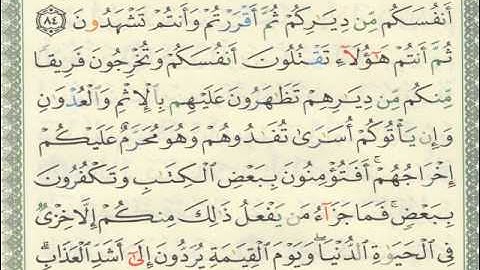 أَنفُسَكُم مِّن دِيَٰرِكُمْ ثُمَّ أَقْرَرْتُمْ وَأَنتُمْ تَشْهَدُونَ ٨٤
ثُمَّ أَنتُمْ هَٰٓؤُلَآءِ تَقْتُلُونَ أَنفُسَكُمْ وَتُخْرِجُونَ فَرِيقًا
مِّنكُم مِّن دِيَٰرِهِمْ تَظَٰهَرُونَ عَلَيْهِم بِٱلْإِثْمِ وَٱلْعُدْوَٰنِ
وَإِن يَأْتُوكُمْ أُسَٰرَىٰ تُفَٰدُوهُمْ وَهُوَ مُحَرَّمٌ عَلَيْكُمْ
إِخْرَاجُهُمْ ۚ أَفَتُؤْمِنُونَ بِبَعْضِ ٱلْكِتَٰبِ وَتَكْفُرُونَ
بِبَعْضٍ ۚ فَمَا جَزَآءُ مَن يَفْعَلُ ذَٰلِكَ مِنكُمْ إِلَّا خِزْىٌ
فِى ٱلْحَيَوٰةِ ٱلدُّنْيَا ۖ وَيَوْمَ ٱلْقِيَٰمَةِ يُرَدُّونَ إِلَىٰٓ أَشَدِّ ٱلْعَذَابِ ۗ